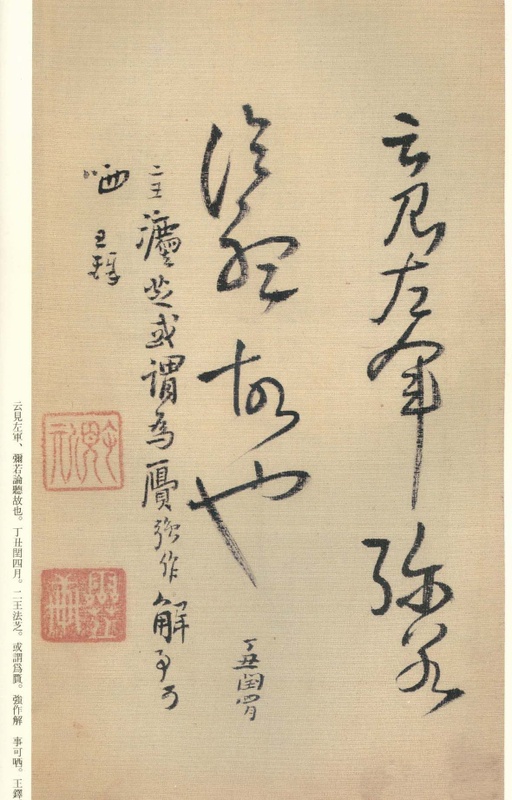 云見左軍弥若
論聽故也
丁丑閏四月
二王瀍芝或謂為贗強作解事可
哂 王鐸
云見左軍、彌若論聽故也。丁丑閏四月。二王法芝。或謂爲贋。強作解 事可哂。王鐸